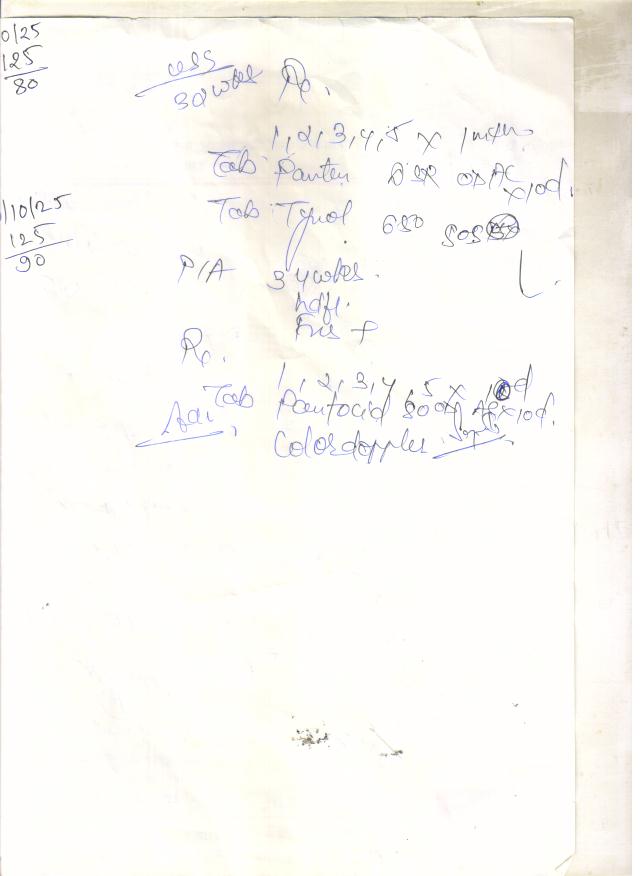 0/25
125
80
USS
32 wks Rx.
1, 2, 3, 4, 5 x 1
Tab Panten DSR OD AC
x10d.
Tab: 650 SOS
/10/25
125
90
P/A 34 wks.
Rx.
1, 2, 3, 4 5 x 10d
Tab Pantocid x10d.
Adv, Color doppler